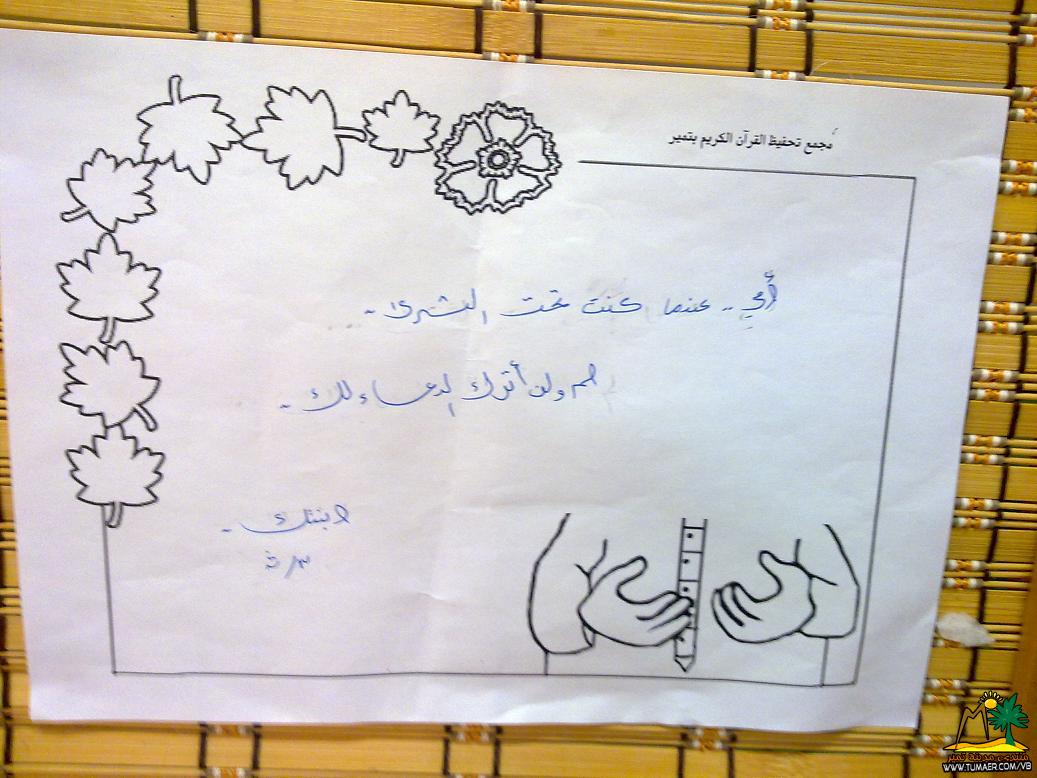 مجمع تحفيظ القرآن الكريم بتمير
أمي .. عندما كنت تحت الثرى -
لم ولن أترك الدعاء لك -
ابنتك -
منتدى مدينة تمير
WWW.TUMAER.COM/VB